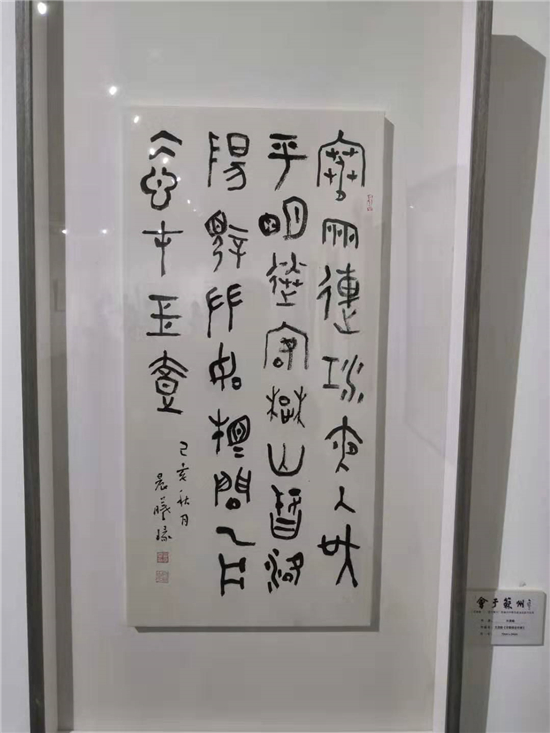 寒雨連江夜入吳
平明送客楚山孤洛
陽親友如相問一片
冰心在玉壺
己亥秋月
晨曦
會于蘇州